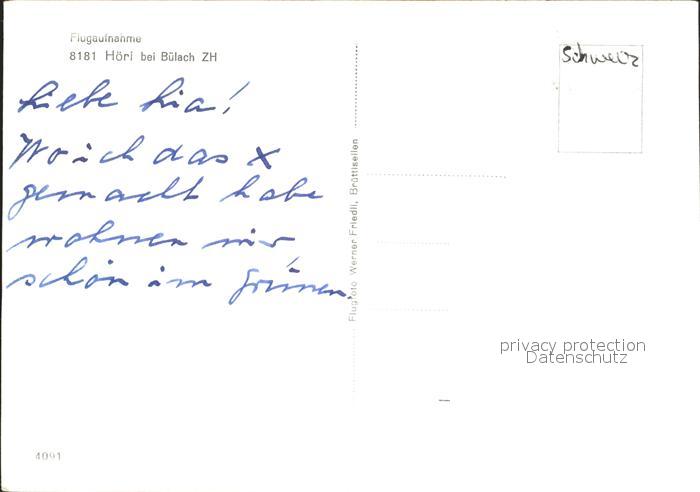 Flugaufnahme
8181 Höri bei Bülach ZH
Liebe Lia!
Wo ich das X
gemacht habe
wohnen wir
schön im Grünen.
Flugfoto Werner Friedli, Brüttisellen
Schweiz
privacy protection
Datenschutz
4091